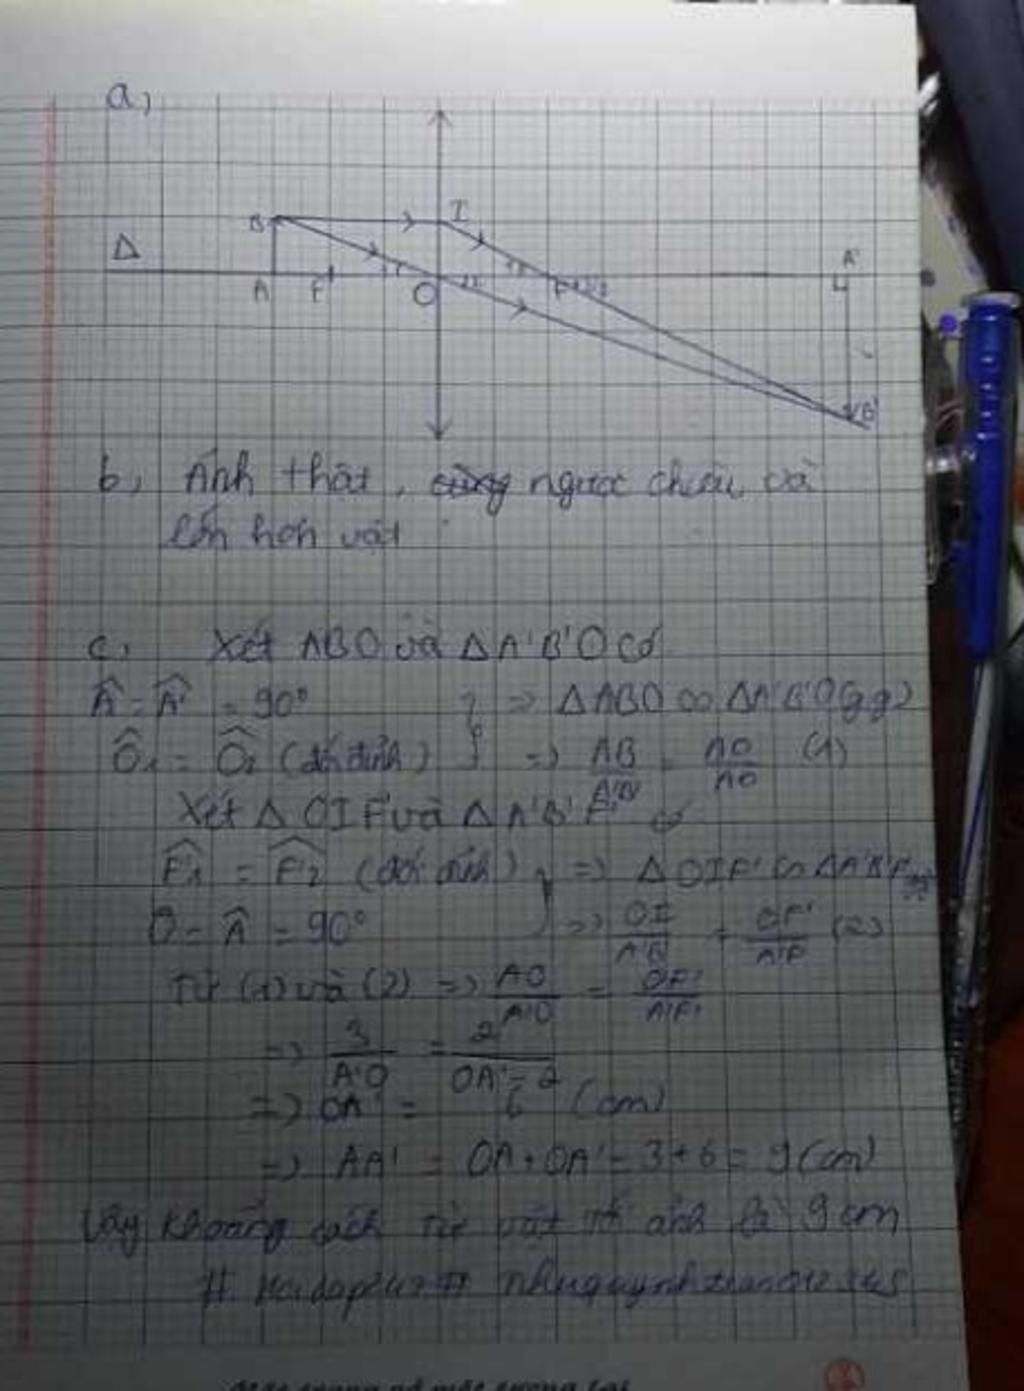 a,
B I
Δ A F O F' A'
B'
b, Ảnh thật, ngược chiều và
lớn hơn vật
c, Xét ABO và ΔA'B'O có
Â = Â' = 90° } => ΔABO ∽ ΔA'B'O (g.g)
Ô1 = Ô2 (đối đỉnh) } => AB/A'B' = AO/AO (1)
Xét ΔOIF' và ΔA'B'F' có
F'1 = F'2 (đối đỉnh) } => ΔOIF' ∽ ΔA'B'F'
O = Â = 90° } => OI/A'B' = OF'/A'F' (2)
Từ (1) và (2) => AO/A'O = OF'/A'F'
=> 3/A'O = 2/OA'-2
=> OA' = 6 (cm)
=> AA' = OA + OA' = 3+6 = 9 (cm)
Vậy khoảng cách từ vật tới ảnh là 9 cm
# Hoidap247 #